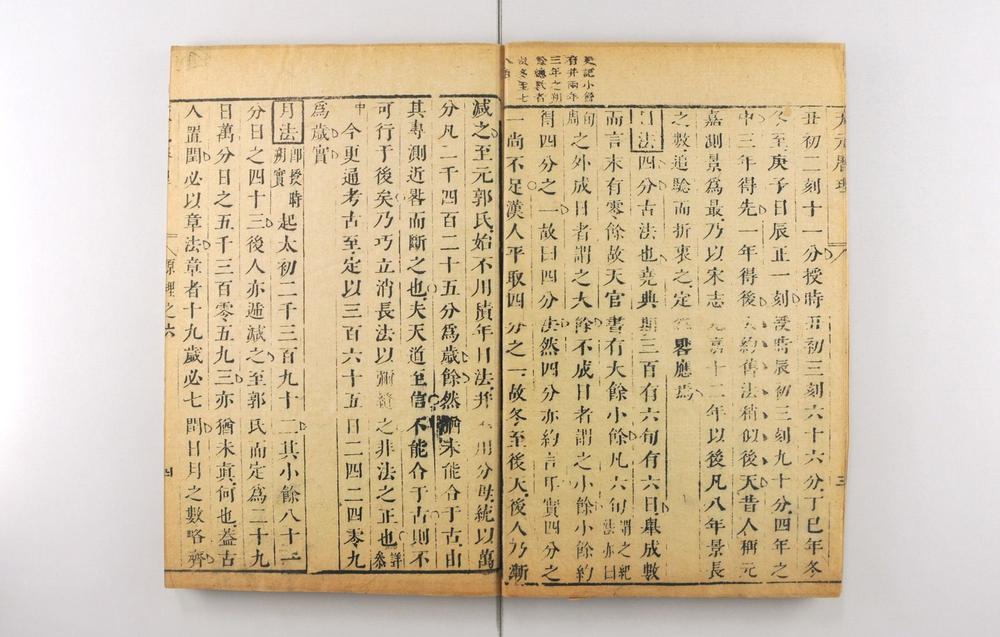 史記小餘
有幷兩年
三年之朔
餘總數者
故冬至七
丑初二刻十一分授時丑初三刻六十六分丁巳年冬
冬至庚子日辰正一刻授時辰初三刻九十分四年之
中三年得先一年得後大約舊法稍似後天昔人稱元
嘉測景爲最乃以宋志元嘉十二年以後凡八年景長
之數追騐而折衷之定畧應焉
日法四分古法也堯典朞三百有六旬有六日舉成數
而言末有零餘故天官書有大餘小餘凡六旬謂之紀法亦曰
旬周之外成日者謂之大餘不成日者謂之小餘小餘約
得四分之一故曰四分法然四分亦約言耳實四分之
一尚不足漢人平取四分之一故冬至後天後人乃漸
天元曆理
三
減之至元郭氏始不用積年日法幷用分母統以萬
分凡二千四百二十五分爲歲餘然猶未能合于古由
其專測近畧而斷之也夫天道至信不能合于古則不
可行于後矣乃巧立消長法以彌縫之非法之正也詳叅
中今更通考古至定以三百六十五日二四二四零九
爲歲實
月法卽授時朔實起太初二千三百九十二其小餘八十一
分日之四十三後人亦遞減之至郭氏而定爲二十九
日萬分日之五千三百零五九三亦猶未真何也葢古
人置閏必以章法章者十九歲必七閏日月之數略齊
原理之六
四